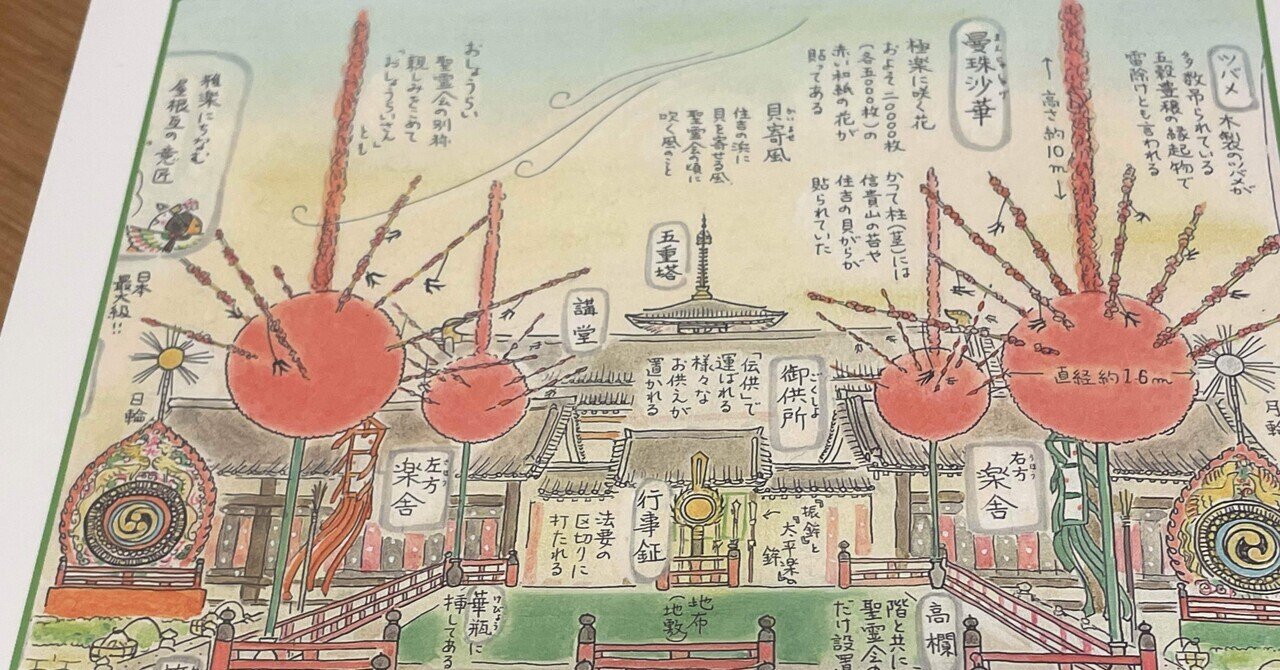 ツバメ
木製のツバメが
多数吊られている
五穀豊穣の縁起物で
雷除けとも言われる
高さ約10m
まんじゅしゃげ
曼珠沙華
極楽に咲く花
およそ二〇〇〇〇枚
(各五〇〇〇枚)の
赤い和紙の花が
貼ってある
かつて柱(茎)には
信貴山の苔や
住吉の貝がらが
貼られていた
かいよせ
貝寄風
住吉の浜に
貝を寄せる風、
聖霊会の頃に
吹く風のこと
おしょうらい
聖霊会の別称
親しみをこめて
「おしょうらいさん」
とも
雅楽にちなむ
屋根瓦の意匠
五重塔
講堂
日本
最大級!!
日輪
月輪
直径約1.6m
ごくしょ
御供所
「伝供」で
運ばれる
様々な
お供えが
置かれる
うほう
右方
楽舎
さほう
左方
楽舎
『振鉾』と
『太平楽』の
鉾
行事鉦
法要の
区切りに
打たれる
高欄
階と共に
聖霊会
だけ設置
地布
(地敷
けびょう
華瓶に
挿してある